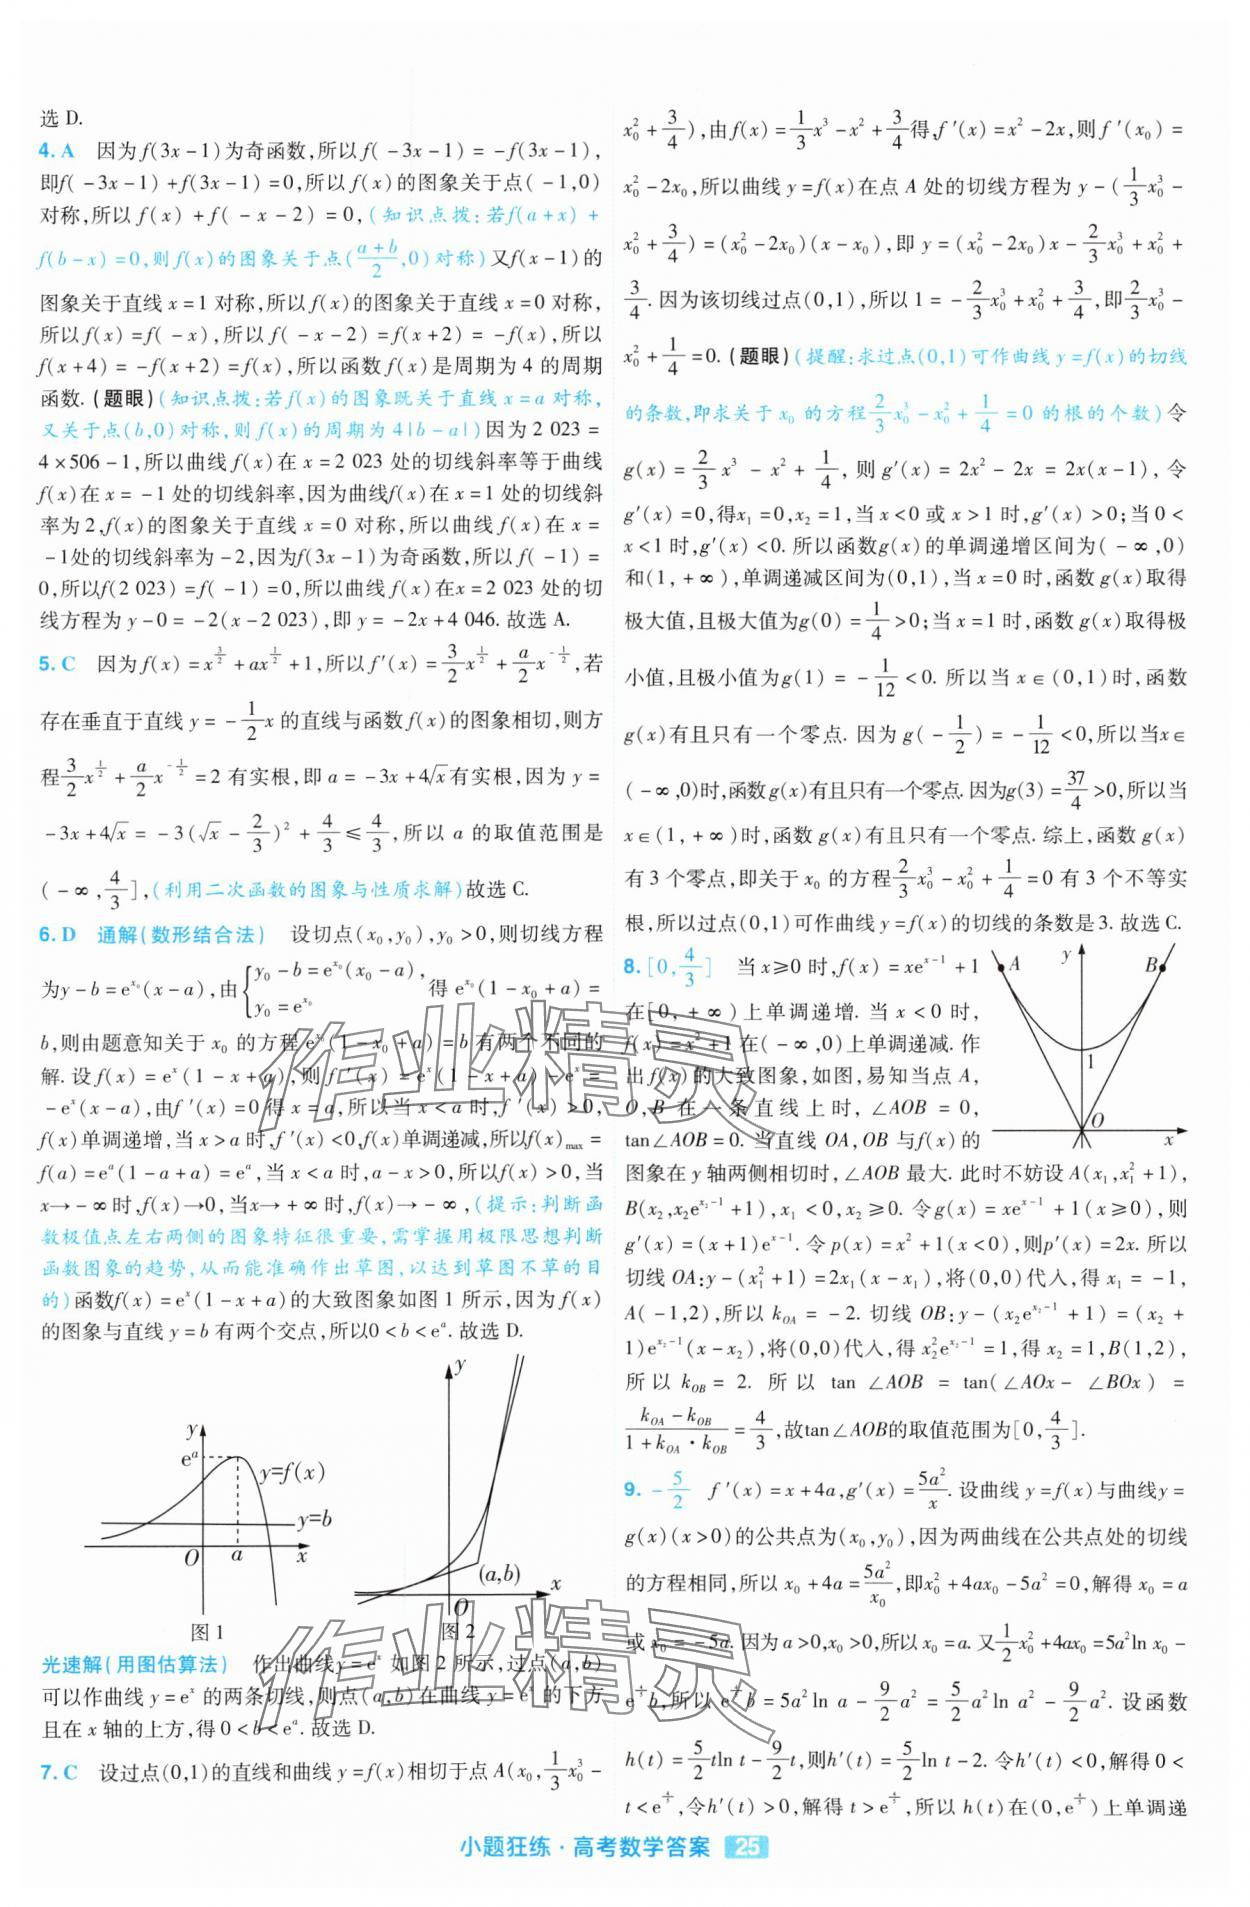 选 D.
4. A 因为 f(3x-1)为奇函数,所以 f(-3x-1)=-f(3x-1),
即f(-3x-1)+f(3x-1)=0,所以 f(x)的图象关于点(-1,0)
对称,所以 f(x)+f(-x-2)=0,(知识点拨:若f(a+x)+
f(b-x)=0,则 f(x)的图象关于点(\frac{a+b}{2},0)对称)又f(x-1)的
图象关于直线 x=1 对称,所以 f(x)的图象关于直线 x=0 对称,
所以 f(x)=f(-x),所以 f(-x-2)=f(x+2)=-f(x),所以
f(x+4)=-f(x+2)=f(x),所以函数 f(x)是周期为 4 的周期
函数.(题眼)(知识点拨:若 f(x)的图象既关于直线 x=a 对称,
又关于点(b,0)对称,则 f(x)的周期为 4|b-a|)因为 2 023=
4×506-1,所以曲线 f(x)在 x=2 023 处的切线斜率等于曲线
f(x)在 x=-1 处的切线斜率,因为曲线f(x)在 x=1 处的切线斜
率为 2,f(x)的图象关于直线 x=0 对称,所以曲线 f(x)在 x=
-1处的切线斜率为-2,因为f(3x-1)为奇函数,所以 f(-1)=
0,所以f(2 023)=f(-1)=0,所以曲线 f(x)在x=2 023 处的切
线方程为 y-0=-2(x-2 023),即 y=-2x+4 046. 故选 A.
5. C 因为 f(x)=x^{\frac{3}{2}}+ax^{\frac{1}{2}}+1,所以 f'(x)=\frac{3}{2}x^{\frac{1}{2}}+\frac{a}{2}x^{-\frac{1}{2}},若
存在垂直于直线 y=-\frac{1}{2}x 的直线与函数 f(x)的图象相切,则方
程\frac{3}{2}x^{\frac{1}{2}}+\frac{a}{2}x^{-\frac{1}{2}}=2 有实根,即 a=-3x+4√x有实根,因为 y=
-3x+4√x=-3(√x-\frac{2}{3})²+\frac{4}{3}≤\frac{4}{3},所以 a 的取值范围是
(-∞,\frac{4}{3}],(利用二次函数的图象与性质求解)故选 C.
6. D 通解(数形结合法) 设切点(x₀,y₀),y₀>0,则切线方程
为y-b=e^{x₀}(x-a),由{y₀-b=e^{x₀}(x₀-a), y₀=e^{x₀} 得 e^{x₀}(1-x₀+a)=
b,则由题意知关于 x₀ 的方程 e^{x₀}(1-x₀+a)=b 有两个不同的
解. 设 f(x)=e^x(1-x+a),则 f'(x)=e^x(1-x+a)-e^x=
-e^x(x-a),由f'(x)=0得 x=a,所以当 x<a 时,f'(x)>0,
f(x)单调递增,当 x>a 时,f'(x)<0,f(x)单调递减,所以f(x)_{max}=
f(a)=e^a(1-a+a)=e^a,当 x<a 时,a-x>0,所以f(x)>0,当
x→-∞ 时,f(x)→0,当x→+∞ 时,f(x)→-∞,(提示:判断函
数极值点左右两侧的图象特征很重要,需掌握用极限思想判断
函数图象的趋势,从而能准确作出草图,以达到草图不草的目
的)函数f(x)=e^x(1-x+a)的大致图象如图 1 所示,因为 f(x)
的图象与直线 y=b 有两个交点,所以0<b<e^a. 故选 D.
y
e^a
y=f(x)
y=b
O a x
图 1
y
(a,b)
x
O
图 2
光速解(用图估算法) 作出曲线y=e^x 如图 2 所示,过点(a,b)
可以作曲线 y=e^x 的两条切线,则点(a,b)在曲线 y=e^x 的下方
且在 x 轴的上方,得 0<b<e^a. 故选 D.
7. C 设过点(0,1)的直线和曲线 y=f(x)相切于点 A(x₀,\frac{1}{3}x₀³-
x₀²+\frac{3}{4}),由f(x)=\frac{1}{3}x³-x²+\frac{3}{4}得,f'(x)=x²-2x,则 f'(x₀)=
x₀²-2x₀,所以曲线 y=f(x)在点 A 处的切线方程为 y-(\frac{1}{3}x₀³-
x₀²+\frac{3}{4})=(x₀²-2x₀)(x-x₀),即 y=(x₀²-2x₀)x-\frac{2}{3}x₀³+x₀²+
\frac{3}{4}. 因为该切线过点(0,1),所以 1=-\frac{2}{3}x₀³+x₀²+\frac{3}{4},即\frac{2}{3}x₀³-
x₀²+\frac{1}{4}=0.(题眼)(提醒:求过点(0,1)可作曲线 y=f(x)的切线
的条数,即求关于 x₀ 的方程\frac{2}{3}x₀³-x₀²+\frac{1}{4}=0 的根的个数)令
g(x)=\frac{2}{3}x³-x²+\frac{1}{4},则 g'(x)=2x²-2x=2x(x-1),令
g'(x)=0,得x₁=0,x₂=1,当 x<0 或 x>1 时,g'(x)>0;当 0<
x<1时,g'(x)<0. 所以函数g(x)的单调递增区间为(-∞,0)
和(1,+∞),单调递减区间为(0,1),当 x=0 时,函数 g(x)取得
极大值,且极大值为g(0)=\frac{1}{4}>0;当 x=1 时,函数 g(x)取得极
小值,且极小值为g(1)=-\frac{1}{12}<0. 所以当 x∈(0,1)时,函数
g(x)有且只有一个零点. 因为 g(-\frac{1}{2})=-\frac{1}{12}<0,所以当x∈
(-∞,0)时,函数g(x)有且只有一个零点. 因为g(3)=\frac{37}{4}>0,所以当
x∈(1,+∞)时,函数 g(x)有且只有一个零点. 综上,函数 g(x)
有 3 个零点,即关于 x₀ 的方程\frac{2}{3}x₀³-x₀²+\frac{1}{4}=0 有 3 个不等实
根,所以过点(0,1)可作曲线 y=f(x)的切线的条数是 3. 故选 C.
8. [0,\frac{4}{3}] 当 x≥0 时,f(x)=xe^{x-1}+1
在[0,+∞)上单调递增. 当 x<0 时,
f(x)=x²+1 在(-∞,0)上单调递减. 作
出 f(x)的大致图象,如图,易知当点 A,
O,B 在一条直线上时,∠AOB=0,
tan∠AOB=0. 当直线 OA,OB 与f(x)的
A y B
1
O
x
图象在 y 轴两侧相切时,∠AOB 最大. 此时不妨设 A(x₁,x₁²+1),
B(x₂,x₂e^{x₂-1}+1),x₁<0,x₂≥0. 令g(x)=xe^{x-1}+1(x≥0),则
g'(x)=(x+1)e^{x-1}. 令 p(x)=x²+1(x<0),则p'(x)=2x. 所以
切线 OA:y-(x₁²+1)=2x₁(x-x₁),将(0,0)代入,得 x₁=-1,
A(-1,2),所以 k_{OA}=-2. 切线 OB:y-(x₂e^{x₂-1}+1)=(x₂+
1)e^{x₂-1}(x-x₂),将(0,0)代入,得 x₂²e^{x₂-1}=1,得 x₂=1,B(1,2),
所以 k_{OB}=2. 所以 tan ∠AOB=tan(∠AOx-∠BOx)=
\frac{k_{OA}-k_{OB}}{1+k_{OA}·k_{OB}}=\frac{4}{3},故tan∠AOB的取值范围为[0,\frac{4}{3}].
9. -\frac{5}{2} f'(x)=x+4a,g'(x)=\frac{5a²}{x}. 设曲线 y=f(x)与曲线y=
g(x)(x>0)的公共点为(x₀,y₀),因为两曲线在公共点处的切线
的方程相同,所以 x₀+4a=\frac{5a²}{x₀},即x₀²+4ax₀-5a²=0,解得 x₀=a
或 x₀=-5a. 因为 a>0,x₀>0,所以 x₀=a. 又\frac{1}{2}x₀²+4ax₀=5a²ln x₀-
b,所以 b=5a²ln a-\frac{9}{2}a²=\frac{5}{2}a²ln a²-\frac{9}{2}a². 设函数
h(t)=\frac{5}{2}tln t-\frac{9}{2}t,则h'(t)=\frac{5}{2}ln t-2. 令h'(t)<0,解得 0<
t<e^{\frac{4}{5}},令h'(t)>0,解得 t>e^{\frac{4}{5}},所以 h(t)在(0,e^{\frac{4}{5}})上单调递
小题狂练·高考数学答案 25
作业精灵
作业精灵